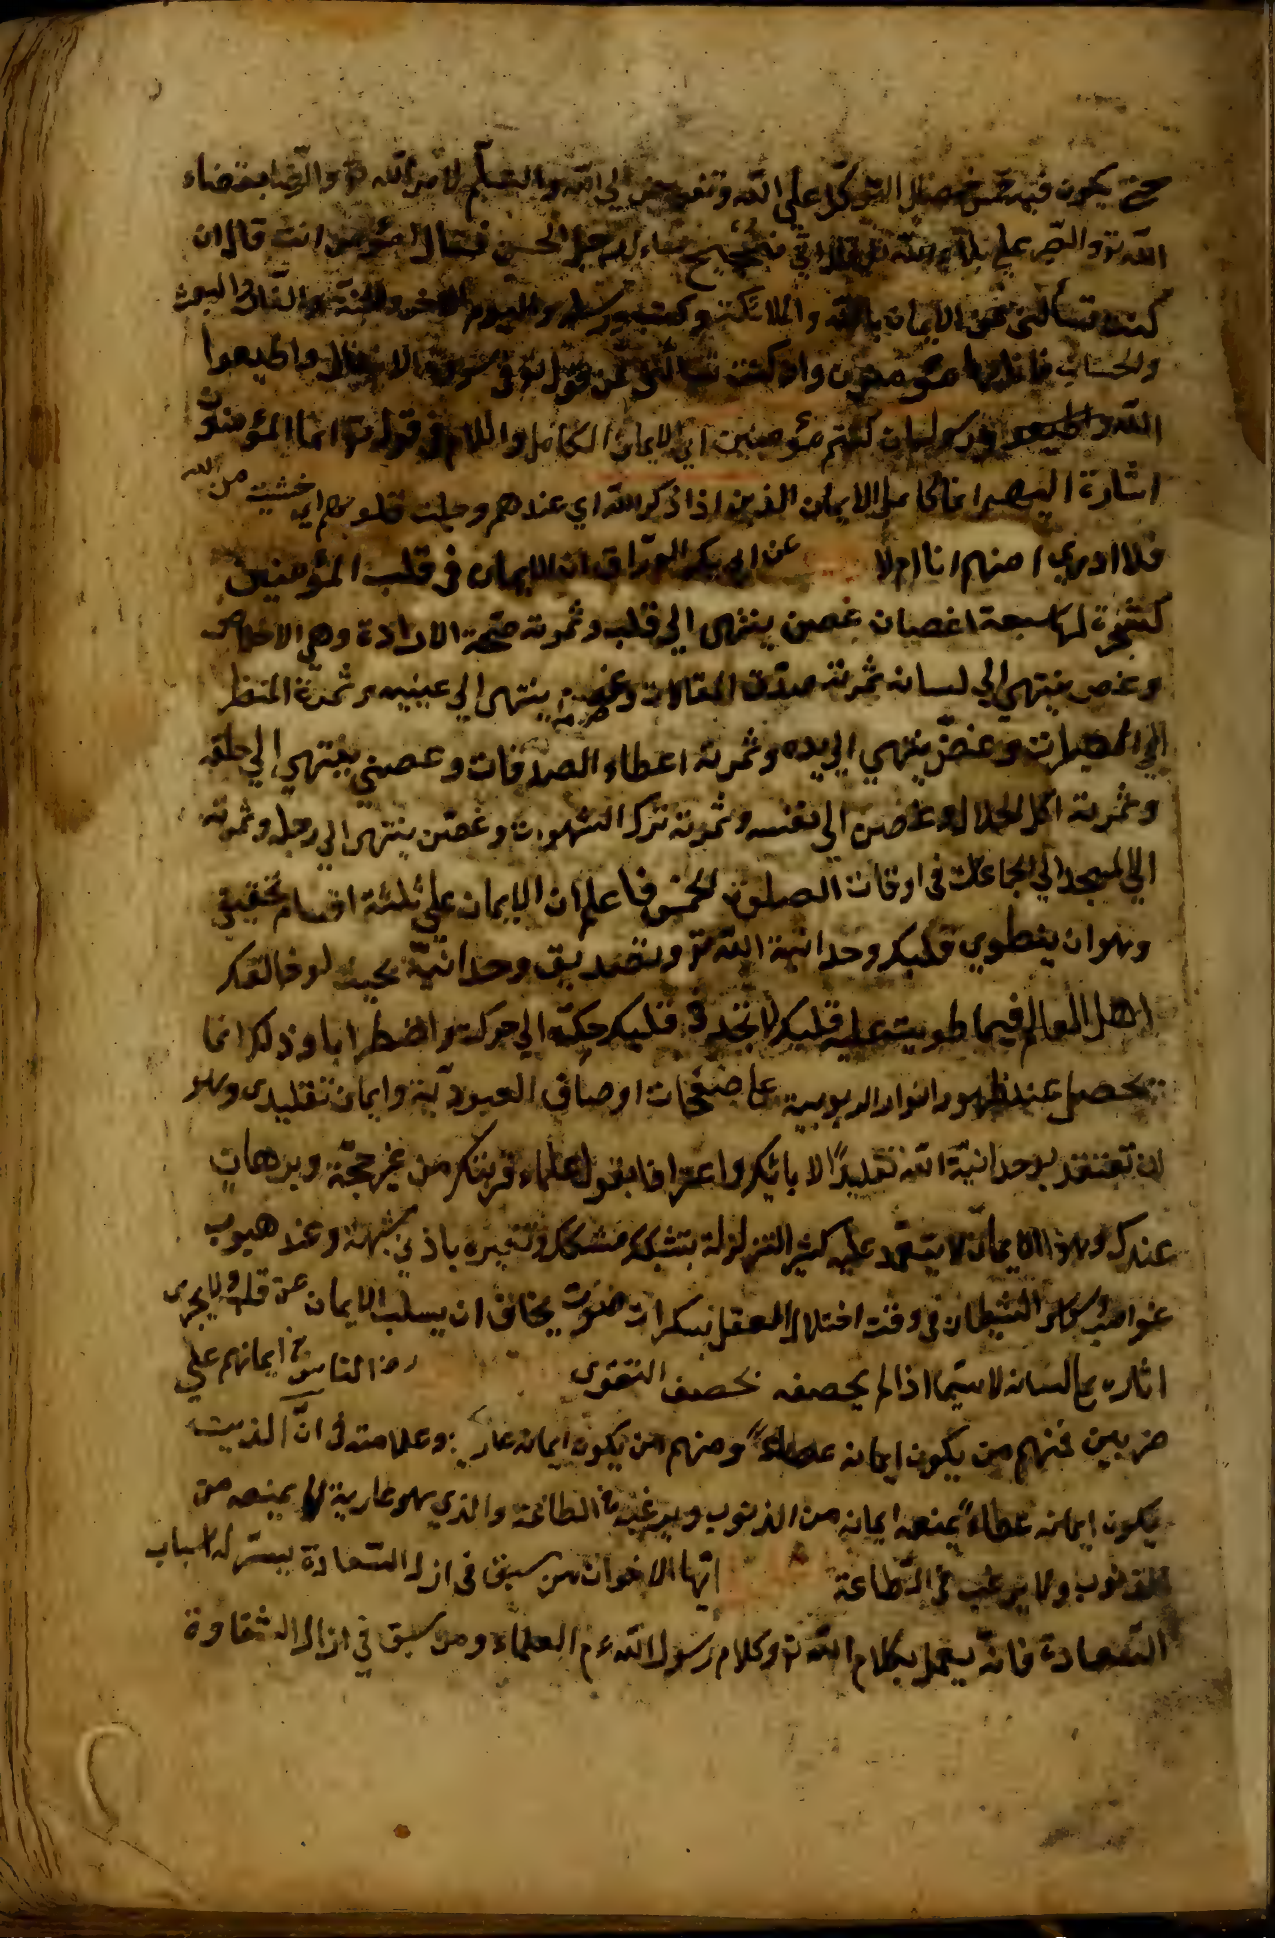 حتى يكون فيه خمس خصال التوكل على الله وتفويض الى الله والتسليم لامر الله تع والرضا بقضاء
الله تع والصبر على بلاء الله رجل الحسن فقال امؤمن انت قال ان
كنت تسألنى عن الايمان بالله والملائكته وكتبه ورسله واليوم الاخر والجنة والنار والبعث
والحساب فانا بها مؤمن وان كنت تسألنى عن قوله تع فى سورة الانفال واطيعوا
الله ورسوله ان كنتم مؤمنين اي الايمان الكامل واللام فى قوله تع انما المؤمنون
اشارة اليهم انما كامل الايمان الذين اذا ذكر الله اي عندهم وجلت قلوبهم اي خشيت من الله
فلا ادري امنهم انا ام لا عن ابي بكر الوراق ان الايمان فى قلب المؤمنين
كشجرة لها سبعة اغصان غصن ينتهى الي قلبه وثمرته صحة الارادة وهي الاخلاص
وغصن ينتهي الي لسانه ثمرته صدق المقالات وغصن ينتهى الي عينيه وثمرة النظر
الي وغصن ينتهي الي يده وثمرته اعطاء الصدقات وغصن ينتهي الي حلقه
وثمرته اكل الحلال وغصن الي نفسه وثمرته ترك الشهوات وغصن ينتهى الي رجله وثمرته
الي المسجد الي الجماعات فى اوقات الصلوة الخمس فاعلم ان الايمان على ثلثة اقسام تحقيقي
وهو ان ينطوي قلبك وحدانية الله تع وتصديق وحدانيّة بحيث لو خالفك
اهل العالم فيما طويت عليه قلبك لا تجد فى قلبك حكة الي حركت واضطرابا وذلك انما
يحصل عند ظهور انوار الربوبية على صفحات اوصاف العبوديّة وايمان تقليدى وهو
ان تعتقد بوحدانيّة الله تقليدًا لابائك واعترافا بقول علماء قريتك من غير حجّة وبرهان
عندك وهذا الايمان لا يعتمد عليه كثير التزلزلة بتشكك مشكك وتغيره باذني شبهة وعند هبوب
عواصف الشيطان فى وقت اختلال العقل بسكرات موت يخاف ان يسلب الايمان عن قلبه ولا يجرى
اثاره على لسانه لاسيما اذا لم يحصنه بحصن التقوى الناس فى ايمانهم على
ضربين فمنهم من يكون ايمانه عطاء ومنهم من يكون ايمانه عارية وعلامته فى انّ الذي
يكون ايمانه عطاء يمنعه ايمانه من الذنوب ويرغبه فى الطاعة والذي هو عارية لا يمنعه من
الذنوب ولا يرغب فى الطاعة ايّها الاخوان من سبق فى ازله السعادة ييسّر له اسباب
السعادة فانّه يعمل بكلام الله تع وكلام رسول الله عم العلماء ومن سبق في ازله الشقاوة